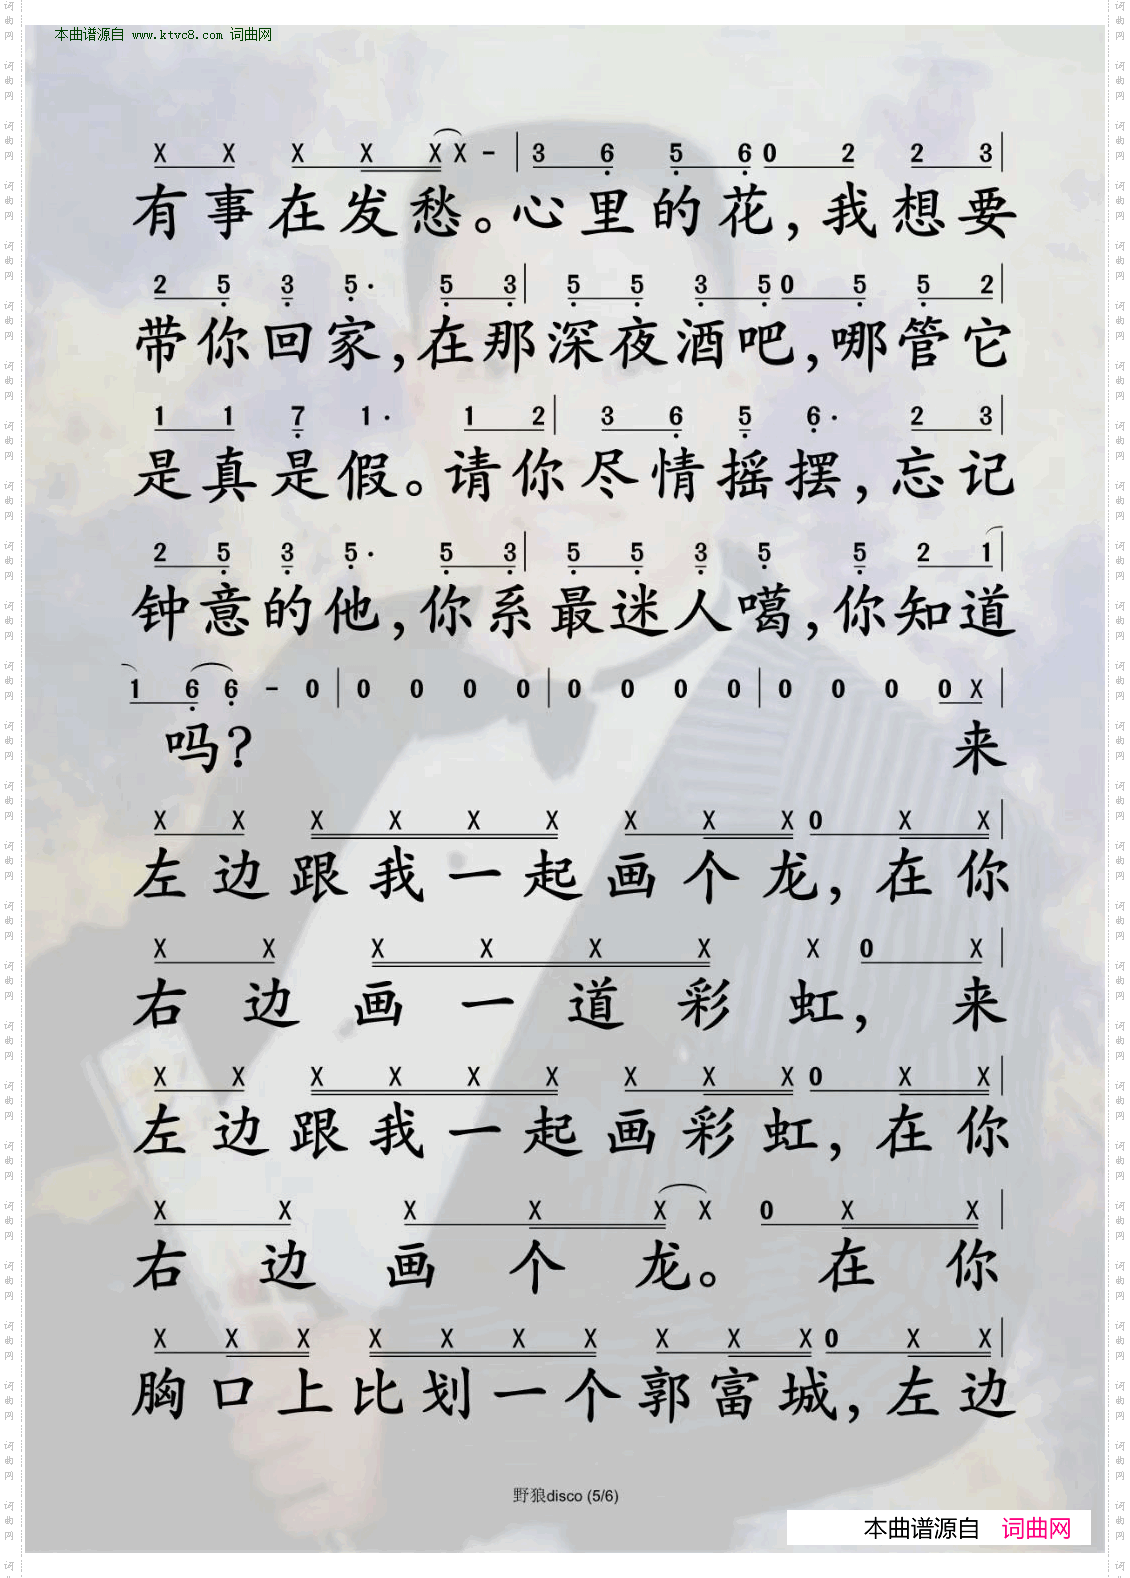 本曲谱源自 www.ktvc8.com 词曲网
X X X X X X - | 3 6 5 6 0 2 2 3 |
有事在发愁。心里的花，我想要
2 5 3 5· 5 3 | 5 5 3 5 0 5 5 2 |
带你回家，在那深夜酒吧，哪管它
1 1 7 1· 1 2 | 3 6 5 6· 2 3 |
是真是假。请你尽情摇摆，忘记
2 5 3 5· 5 3 | 5 5 3 5 5 2 1 |
钟意的他，你系最迷人噶，你知道
1 6 6 - 0 | 0 0 0 0 | 0 0 0 0 | 0 0 0 0 X |
吗？ 来
X X X X X X X X X 0 X X |
左边跟我一起画个龙，在你
X X X X X X X 0 X |
右边画一道彩虹，来
X X X X X X X X X 0 X X |
左边跟我一起画彩虹，在你
X X X X X X 0 X X |
右边画个龙。在你
X X X X X X X X X X 0 X X |
胸口上比划一个郭富城，左边
野狼disco (5/6)
本曲谱源自 词曲网